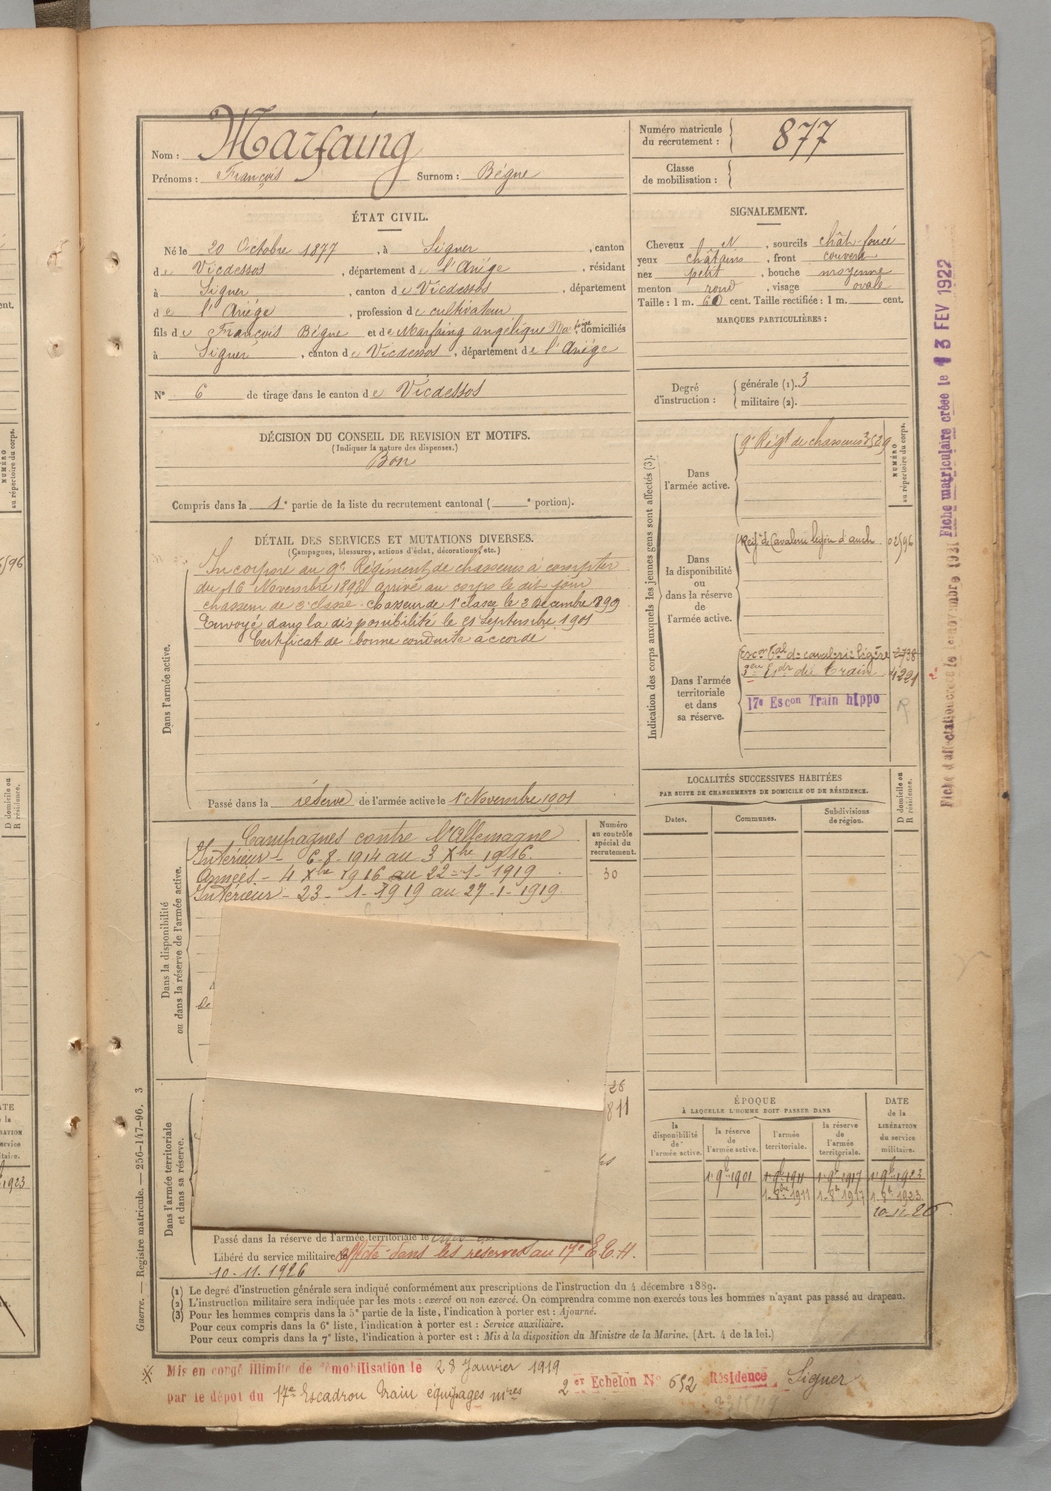 Nom : Marfaing
Prénoms : François Surnom : Bégué
Numéro matricule du recrutement : 877
Classe de mobilisation :
ÉTAT CIVIL.
Né le 20 Octobre 1877, à Siguer, canton
de Vicdessos, département de l'Ariége, résidant
à Siguer, canton de Vicdessos, département
de l'Ariége, profession de cultivateur
fils de François Bégué et de Marfaing angélique domiciliés
à Siguer, canton de Vicdessos, département de l'Ariége
N° 6 de tirage dans le canton de Vicdessos
SIGNALEMENT.
Cheveux N, sourcils chât. foncé
yeux châtains, front couvert
nez petit, bouche moyenne
menton rond, visage ovale
Taille : 1 m. 60 cent. Taille rectifiée : 1 m. cent.
MARQUES PARTICULIÈRES :
Degré d'instruction : générale (1). 3
militaire (2).
DÉCISION DU CONSEIL DE REVISION ET MOTIFS.
(Indiquer la nature des dispenses.)
Bon
Compris dans la 1e partie de la liste du recrutement cantonal ( e portion).
DÉTAIL DES SERVICES ET MUTATIONS DIVERSES.
(Campagnes, blessures, actions d'éclat, décorations, etc.)
Dans l'armée active.
Incorporé au 9e Régiment de chasseurs à compter
du 16 Novembre 1898 arrivé au corps le dit jour
chasseur de 2e classe. Chasseur de 1e classe le 3 Decembre 1899
Envoyé dans la disponibilité le 21 Septembre 1901
Certificat de bonne conduite accordé
Passé dans la réserve de l'armée active le 1er Novembre 1901
Indication des corps auxquels les jeunes gens sont affectés (3).
NUMÉRO au répertoire du corps.
Dans l'armée active.
9e Régt de chasseurs 3529
Dans la disponibilité ou dans la réserve de l'armée active.
Régt de Cavalerie légère d'auch 02596
Dans l'armée territoriale et dans sa réserve.
17e Escon Train hippo
LOCALITÉS SUCCESSIVES HABITÉES
PAR SUITE DE CHANGEMENTS DE DOMICILE OU DE RÉSIDENCE.
Dates. Communes. Subdivisions de région.
D domicile ou R résidence.
Dans la disponibilité ou dans la réserve de l'armée active.
Numéro au contrôle spécial du recrutement.
30
Campagnes contre l'Allemagne
Intérieur - 6-8-1914 au 3 Xbre 1916.
Armées - 4 Xbre 1916 au 22-1-1919
Intérieur - 23-1-1919 au 27-1-1919
Dans l'armée territoriale et dans sa réserve.
Passé dans la réserve de l'armée territoriale le
Libéré du service militaire le
affecté dans les réserves au 17e E.E.H.
10-11-1926
ÉPOQUE
À LAQUELLE L'HOMME DOIT PASSER DANS
la disponibilité de l'armée active.
la réserve de l'armée active.
l'armée territoriale.
la réserve de l'armée territoriale.
DATE de la LIBÉRATION du service militaire.
1 9bre 1901 1 9bre 1911 1 9bre 1917 1 9bre 1923
10-11-26
(1) Le degré d'instruction générale sera indiqué conformément aux prescriptions de l'instruction du 4 décembre 1889.
(2) L'instruction militaire sera indiquée par les mots : exercé ou non exercé. On comprendra comme non exercés tous les hommes n'ayant pas passé au drapeau.
(3) Pour les hommes compris dans la 5e partie de la liste, l'indication à porter est : Ajourné.
Pour ceux compris dans la 6e liste, l'indication à porter est : Service auxiliaire.
Pour ceux compris dans la 7e liste, l'indication à porter est : Mis à la disposition du Ministre de la Marine. (Art. 4 de la loi.)
Guerre. — Registre matricule. — 256-147-96. 3
Mis en congé illimité de démobilisation le 28 Janvier 1919
par le dépôt du 17e Escadron Train équipages mres 2er Echelon N° 652 Résidence Siguer
Fiche matriculaire créée le 13 FEV 1922